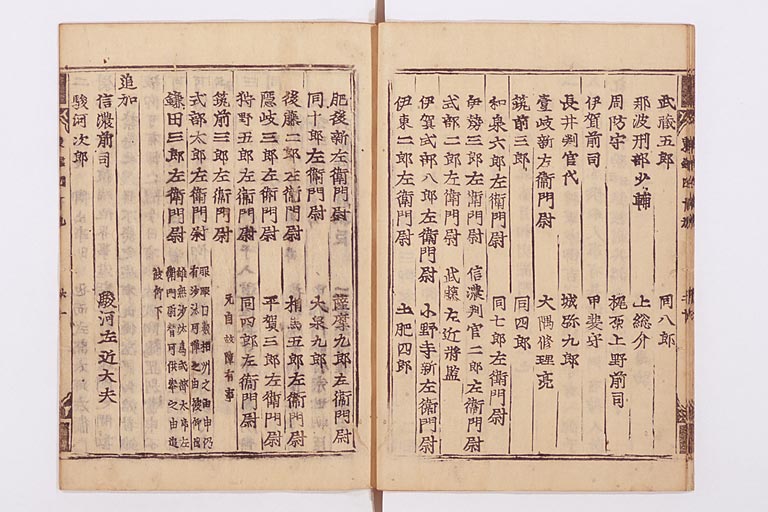 武藤五郎 同八郎
那波刑部少輔 上総介
周防守 梶原上野前司
伊賀前司 甲斐守
長井判官代 城弥九郎
壹岐新左衛門尉 大隅修理亮
筑前三郎 同四郎
和泉六郎左衛門尉 同七郎左衛門尉
伊勢三郎左衛門尉 信濃判官二郎左衛門尉
式部二郎左衛門尉 武藤左近將監
伊賀式部八郎左衛門尉 小野寺新左衛門尉
伊東二郎左衛門尉 土肥四郎
肥後新左衛門尉 薩摩九郎左衛門尉
同十郎左衛門尉 大泉九郎
後藤二郎左衛門尉 相馬五郎左衛門尉
隱岐三郎左衛門尉 平賀三郎左衛門尉
狩野五郎左衛門尉 同四郎左衛門尉
筑前三郎左衛門尉 元自故障有事
式部太郎左衛門尉
鎌田三郎左衛門尉
服暇日數相之由申仍
有沙汰可憚之由被仰
沙汰武藤左
衛門尉可供奉之由
被仰下
追加
信濃前司 駿河左近大夫
駿河次郎